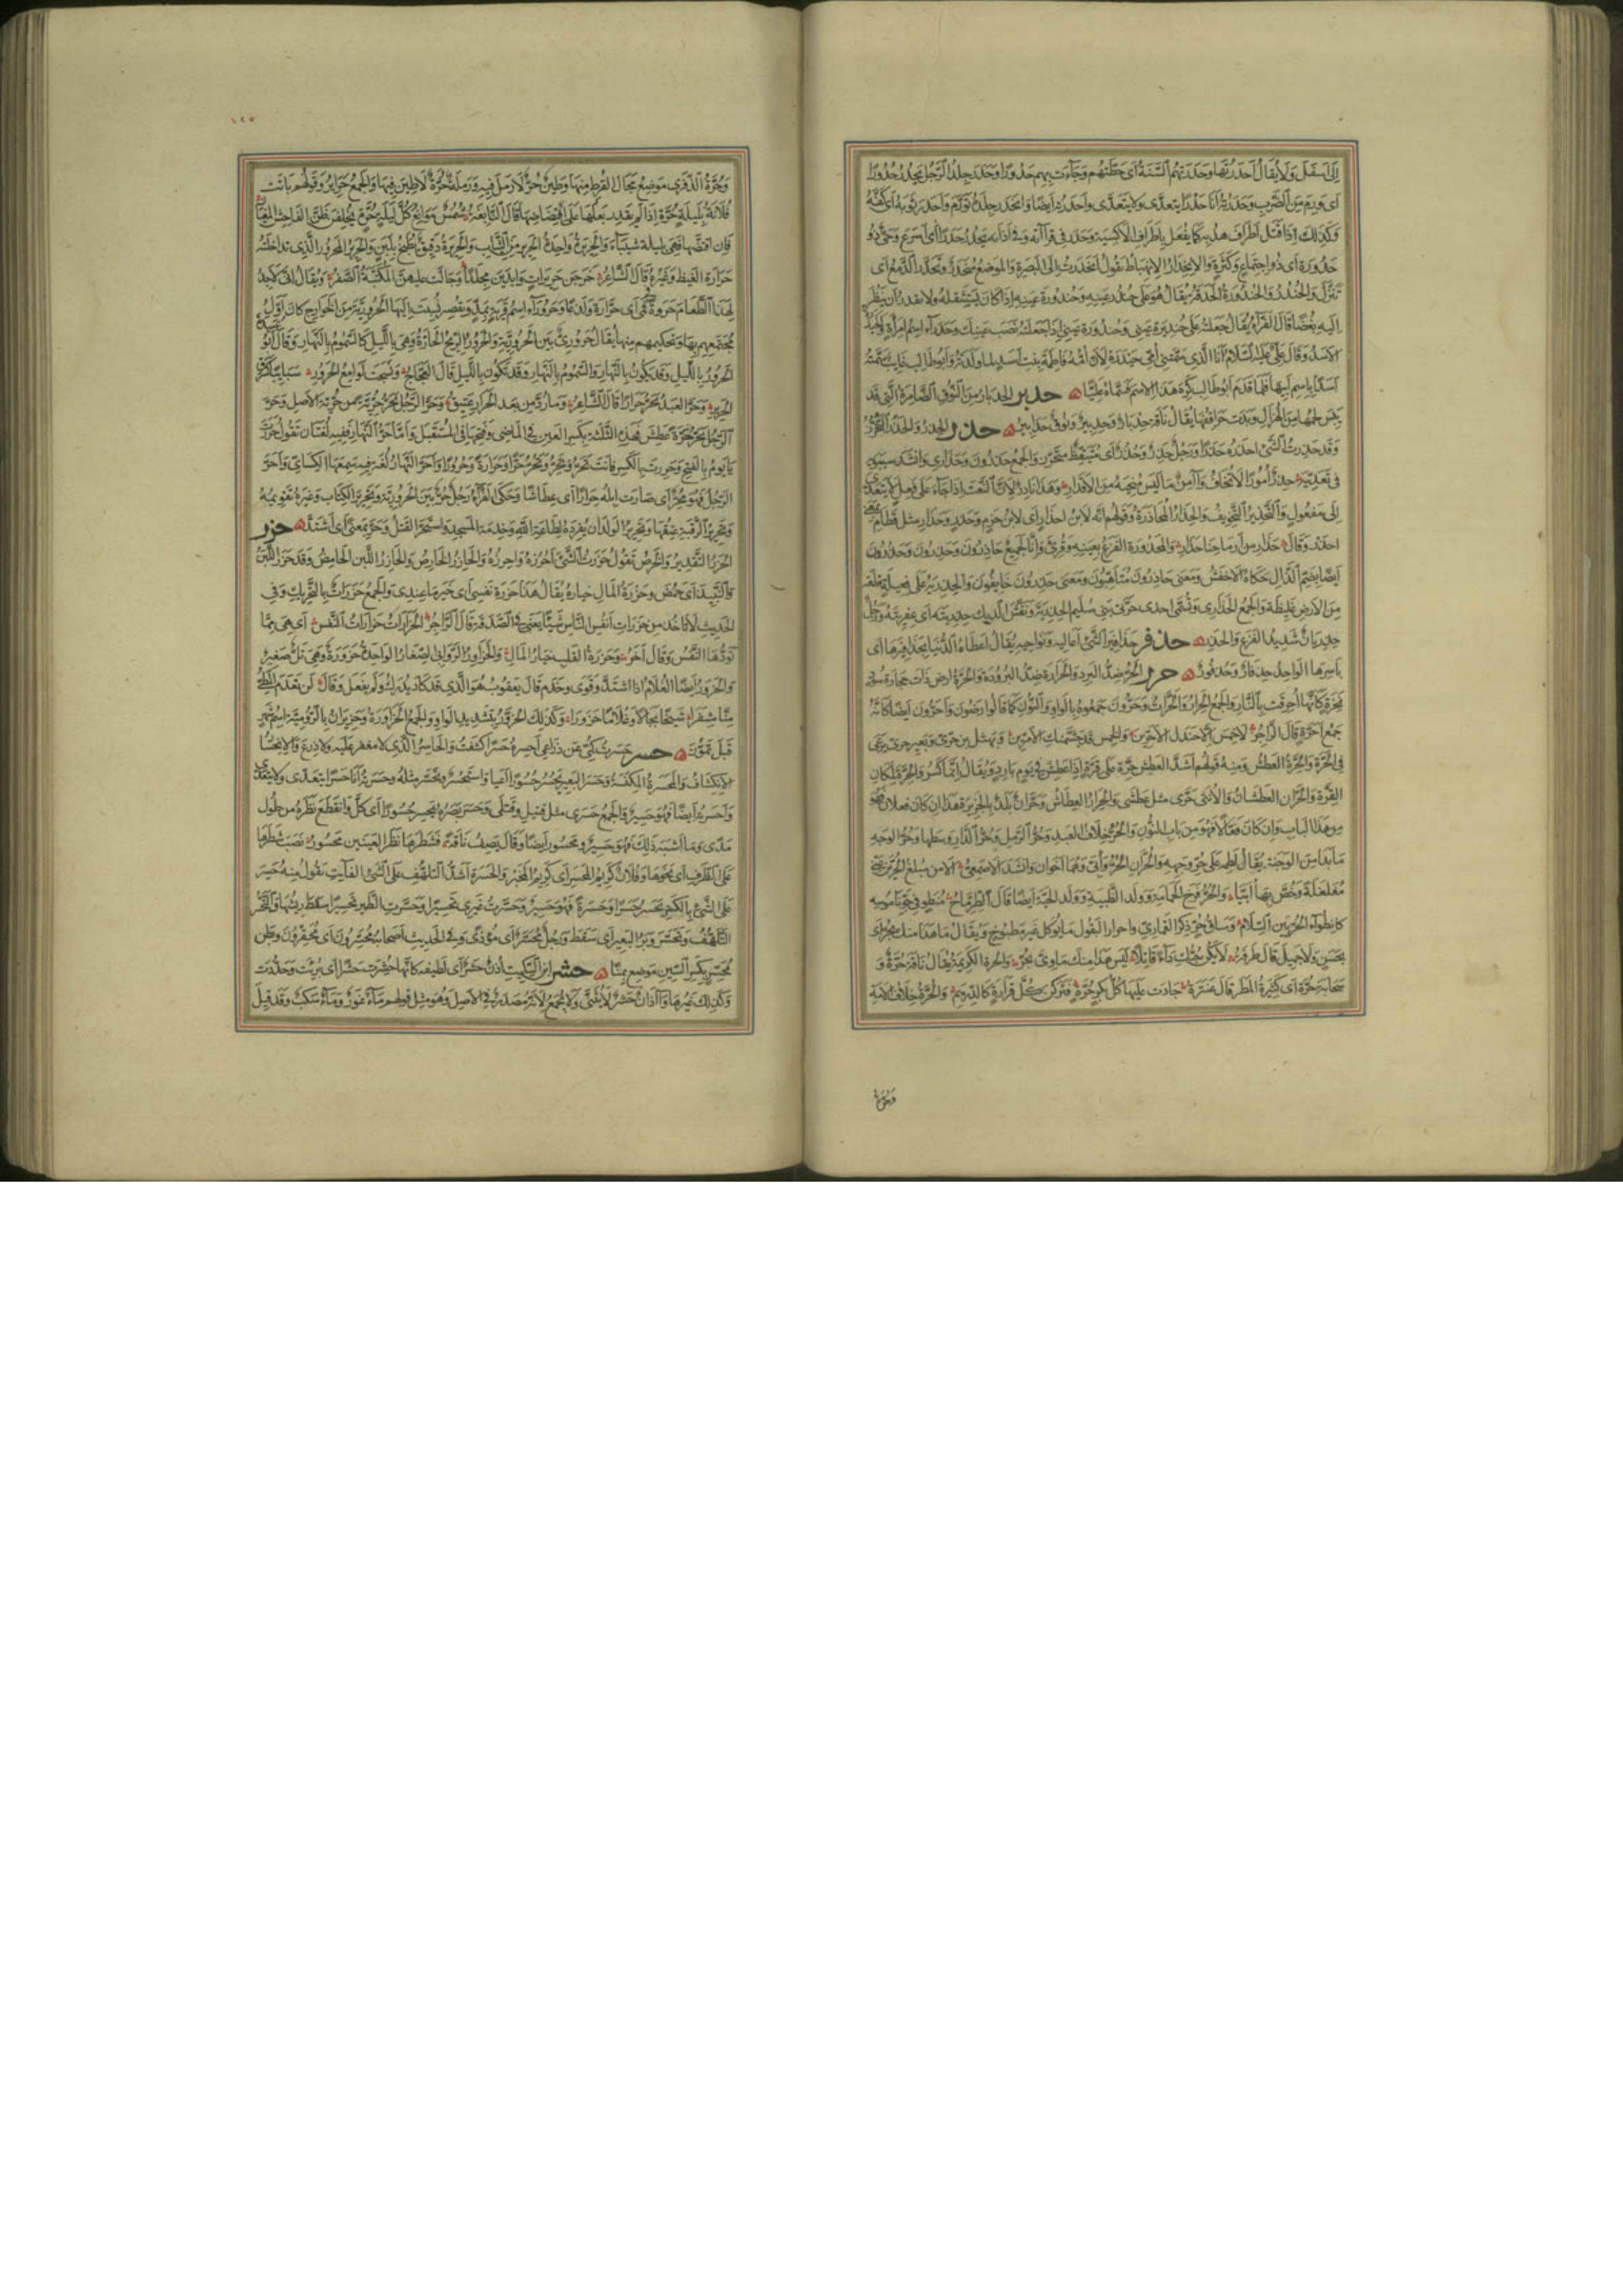 إلى أسفل ولا يقال أحدرتها وحدرتهم السنة أي حطتهم وجاءت بهم حدورا وحدر جلد الرجل يحدر حدورا
أي ورم من الضرب وحدرته أنا حدرا يتعدى ولا يتعدى وأحدرته أيضا وانحدر جلده تورم وأحدر ثوبه أي كفه
وكذلك إذا فتل أطراف هدبه كما يفعل بأطراف الأكسية وحدر في قراءته وفي أذانه يحدر حدرا أي أسرع وحي ذو
حدورة أي ذو اجتماع وكثرة والانحدار الانهباط تقول انحدرت إلى البصرة والموضع منحدر وتحدر الدمع أي
تنزل والحندر والحندورة الحدقة يقال هو على حندر عينه وحندورة عينه إذا كان يستثقله ولا يقدر أن ينظر
إليه بغضا قال الفراء يقال جعلته على حنديرة عيني وحندورة عيني إذا جعلته نصب عينك وحدراء اسم امرأة
الأسد وقال علي عليه السلام أنا الذي سمتني أمي حيدرة لأن أمه فاطمة بنت أسد لما ولدته وأبو طالب غايب سمته
أسدا باسم أبيها فلما قدم أبو طالب كره هذا الاسم فسماه عليا حدبر الحدبار من النوق الضامرة التي قد
يبس لحمها من الهزال وبدت حراقفها يقال ناقة حدبار وحدبير ونوق حدابير حذر الحذر والحذر التحرز
وقد حذرت الشيء أحذره حذرا ورجل حذر وحذر أي متيقظ متحرز والجمع حذرون وحذاري وأنشد سيبويه
في تعديه حذر أمورا لا تخاف وآمن ما ليس منجيه من الأقدار وهذا نادر لأن النعت إذا جاء على فعل لا يتعدى
إلى مفعول والتحذير التخويف والحذار المحاذرة وقولهم إنه لابن أحذار أي لابن حزم وحذر وحذار مثل قطام بمعنى
احذر وقال حذار من أرماحنا حذار والمحذورة الفزع بعينه وقرئ وإنا لجميع حاذرون وحذرون وحذرون
أيضا بضم الذال حكاه الأخفش ومعنى حاذرون متأهبون ومعنى حذرون خايفون والحذرية على فعلية قطعة
من الأرض غليظة والجمع الحذاري وتسمى إحدى حرتي بني سليم الحذرية ونفش الديك حذريته أي عفريته ورجل
حذريان شديد الفزع والحذر حذفر حذافير الشيء أعاليه ونواحيه يقال أعطاه الدنيا بحذافيرها أي
بأسرها الواحد حذفار وحذفور حرر الحر ضد البرد والحرارة ضد البرودة والحرة أرض ذات حجارة سود
نخرة كأنها أحرقت بالنار والجمع الحرار والحرات وحرون جمعوه بالواو والنون كما قالوا أرضون وأحرون أيضا كأنه
جمع أحرة قال الراجز لا خمس إلا جندل الأحرين والخمس قد جشمنك الأمرين ونهشل بن حري وبعير حري يرعى
في الحرة والحرة العطش ومنه قولهم أشد العطش حرة على قرة إذا عطش في يوم بارد ويقال إنما كسر والحرة لمكان
القرة والحران العطشان والأنثى حرى مثل عطشى والحرار العطاش وحران بلد بالجزيرة هذا إن كان فعلان فهو
من هذا الباب وإن كان فعالا فهو من باب النون والحر خلاف العبد وحر الرمل وحر الدار وسطها وحر الوجه
ما بدا من الوجنة يقال لطمه على حر وجهه والحران الحر وأبي وهما أخوان وأنشد الأصمعي ألا من مبلغ الحرين عني
مغلغلة وخص بها أبيا والحر فرخ الحمامة وولد الظبية وولد الحية أيضا قال الطرماح منطو في جوف ناموسه
كانطواء الحر بين السلام وساق حر ذكر القماري وأحرار البقول ما يؤكل غير مطبوخ ويقال ما هذا منك بحر أي
بحسن ولا جميل قال طرفة لا يكن حبك داء قاتلا ليس هذا منك ماوي بحر والحرة الكريمة يقال ناقة حرة و
سحابة حرة أي كثيرة المطر قال عنترة جادت عليها كل بكر حرة فتركن كل قرارة كالدرهم والحرة خلاف الأمة
وحرة
١٢٥
وحرة الذفرى موضع مجال القرط منها وطين حر لا رمل فيه ورملة حرة لا طين فيها والجمع حراير وقولهم باتت
فلانة بليلة حرة إذا لم يقدر بعلها على افتضاضها قال النابغة شمس موانع كل ليلة حرة يخلفن ظن الفاحش المغيار
فإن افتضها فهي بليلة شيباء والحريرة واحدة الحرير من الثياب والحريرة دقيق يطبخ بلبن والحرير المحرور الذي تداخلته
حرارة الغيظ وغيره قال الشاعر خرجن حريرات وأبدين مجلدا وجالت عليهن المكتبة الصفر ويقال إني لأجد
لهذا الطعام حروة في فمي أي حرارة ولذعا وحروراء اسم قرية يمد ويقصر نسبت إليها الحرورية من الخوارج كان أول
مجتمعهم بها وتحكيمهم منها يقال حروري بين الحرورية والحرور الريح الحارة وهي بالليل كالسموم بالنهار وقال أبو عبيدة
الحرور بالليل وقد يكون بالنهار والسموم بالنهار وقد تكون بالليل قال العجاج ونسجت لوامع الحرور سبايبا كسرق
الحرير وحر العبد يحر حرارا قال الشاعر وما رد من بعد الحرار عتيق وحر الرجل يحر حرية من حرية الأصل وحر
الرجل يحر حرة عطش فهذه الثلثة بكسر العين في الماضي وفتحها في المستقبل وأما حر النهار ففيه لغتان تقول حررت
يا يوم بالفتح وحررت بالكسر فأنت تحر وتحر وتحر حرا وحرارة وحرورا وأحر النهار لغة فيه سمعها الكسائي وأحر
الرجل فهو محر أي صارت إبله حرارا أي عطاشا وحكى الفراء رجل حر بين الحرورية وتحرير الكتاب وغيره تقويمه
وتحرير الرقبة عتقها وتحرير الولد أن يفرده لطاعة الله وخدمة المسجد واستحر القتل وحر بمعنى أي اشتد حزر
الحزر التقدير والخرص تقول حزرت الشيء أحزره وأحزره والحازر الخارص والحازر اللبن الحامض وقد حزر اللبن
والنبيذ أي حمض وحزرة المال خياره يقال هذا حزرة نفسي أي خير ما عندي والجمع حزرات بالتحريك وفي
الحديث لا تأخذ من حزرات أنفس الناس شيئا يعني في الصدقة قال الراجز الحزرات حزرات النفس أي هي مما
تودها النفس وقال آخر وحزرة القلب خيار المال والحزاور الروابي الصغار الواحدة حزورة وهي تل صغير
والحزور أيضا الغلام إذا اشتد وقوي وخدم قال يعقوب هو الذي قد كاد يدرك ولم يفعل وقال لن تعدم المطي
منا مشفرا شيخا بجالا وغلاما حزورا وكذلك الحزور بتشديد الواو والجمع الحزاورة وحزيران بالرومية اسم شهر
قبل تموز حسر حسرت كمي عن ذراعي أحسره حسرا كشفت والحاسر الذي لا مغفر عليه ولا درع والانحسار
الانكشاف والمحسرة المكنسة وحسر البعير يحسر حسورا أعيا واستحسر وتحسر مثله وحسرته أنا حسرا يتعدى ولا يتعدى
وأحسرته أيضا فهو حسير والجمع حسرى مثل قتيل وقتلى وحسر بصره يحسر حسورا أي كل وانقطع نظره من طول
مدى وما أشبه ذلك فهو حسير ومحسور أيضا وقال يصف ناقة فشطرها نظر العينين محسور نصب شطرها
على الظرف أي نحوها وفلان كريم المحسر أي كريم المخبر والحسرة أشد التلهف على الشيء الفائت تقول منه حسر
على الشيء بالكسر يحسر حسرا وحسرة فهو حسير وحسرت غيري تحسيرا وحسرت الطير تحسيرا سقط ريشها والتحسر
التلهف وتحسر وبر البعير أي سقط ورجل محسر أي مؤذى وفي الحديث أصحابه محسرون أي محقرون وبطن
محسر بكسر السين موضع بمنا حشر ابن السكيت أذن حشر أي لطيفة كأنها حشرت حشرا أي بريت وحددت
وكذلك غيرها وآذان حشر لا يثنى ولا يجمع لأنه مصدر في الأصل وهو مثل قولهم ماء غور وماء سكب وقد قيل